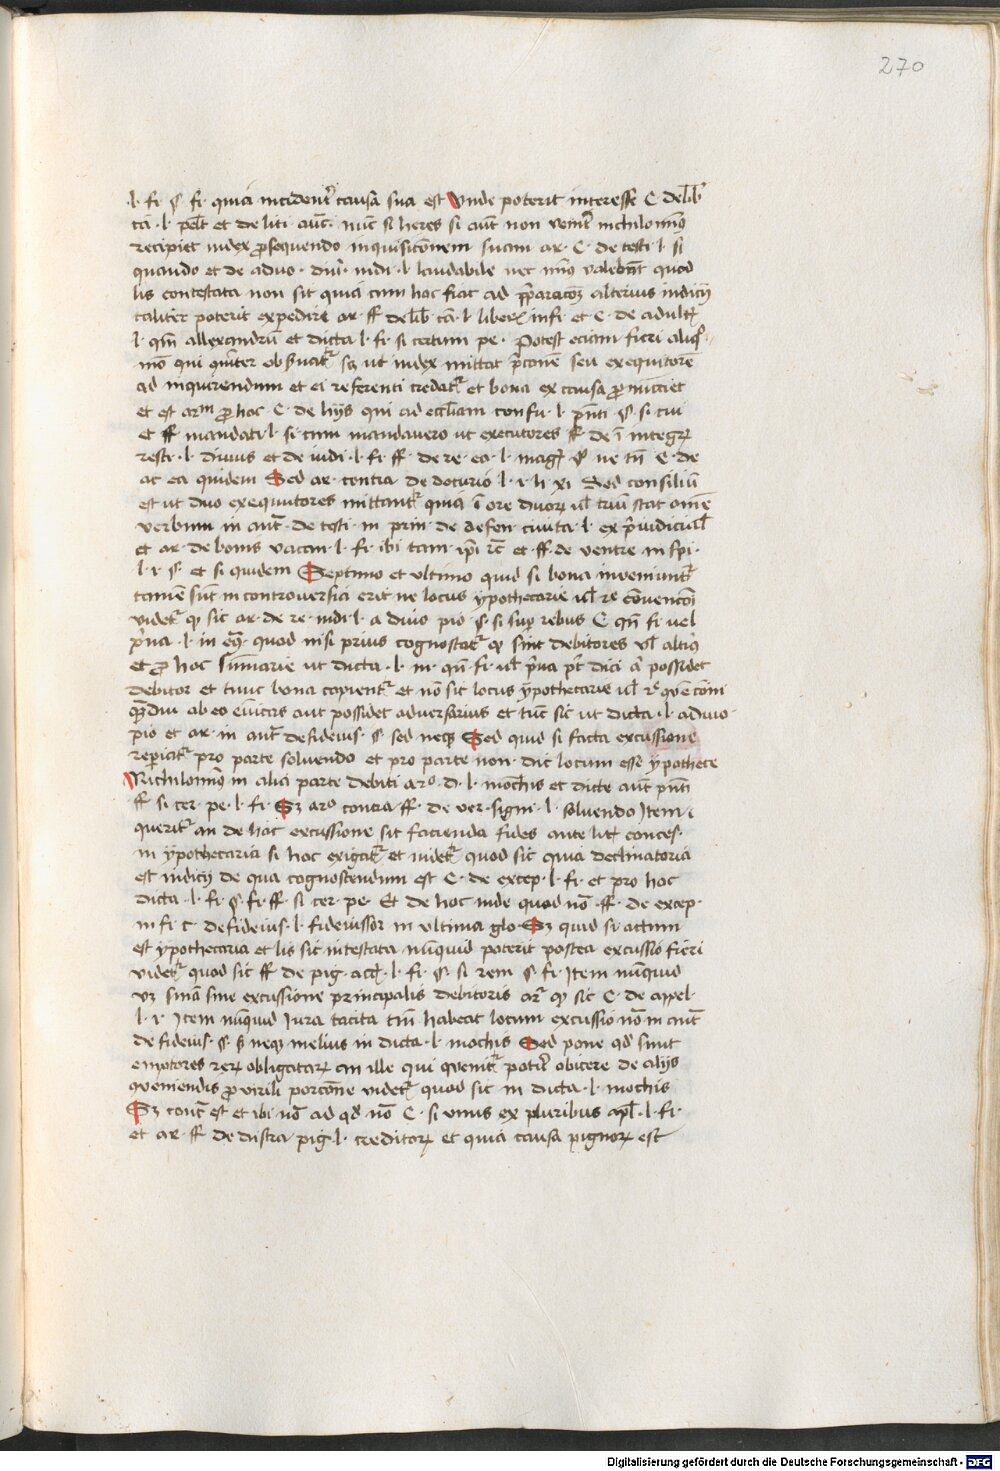 270
l. fi. §. fi. quia incident̄ causā sua est Vnde poterit interesse C de lib̄
cā. l. pet̄ et de liti. aūt. nūc si heres si aūt non veniēt nichilomin9
recipiet iudex ꝓsequendo inquisicōnem suam ar. C. de testi. l. si
quando et de aduo. diu. iudi. l. laudabile nec min9 valebūt quod
lis contestata non sit quia cum hoc fiat ad p̄paracōꝫ alterius iudicij
taliter poterit expedire ar. ff de lib̄ cā. l. liberꝭ in fi. et C. de adultꝭ
l. qm̄ allexandrū et dicta l. fi. si certum pe. Potest eciam fieri aliqͦ
mō qui cōiter obßuatr sꝫ ut iudex mittat p̄conē seu exequitorē
ad inquirendum et ei referenti credatr et bona ex causa ꝓ mittet
et est arm ꝓ hoc C. de hijs qui ad ecclīam confu. l. p̄nti §. si cui
et ff mandati l. si cum mandauero ut executores ff de ī integrꝝ
resti. l. diuus et de iudi. l. fi. ff. de re. ea. l. mag §. ne tn̄ C. de
ac ea quidem Sed ar. contra de doturio l. i. h xi Sed consiliū
est ut duo exequitores mittantr quia ī ore duorꝝ ul̄ triū stat omē
verbum in aūt. de testi. in prin. de defen. ciuita. l. ex p̄iudiciul̄
et ar. de bonis vacan. l. fi. ibi tam ip̄i rc̄ et ff. de ventre in spi.
l. i. §. et si quidem Septimo et vltimo quid si bona inueniuntr
tamē sūt in controuersia erit ne locus ypothecarie ul̄ re cōuencōi
videtr qͦ sic ar. de re. iudi. l. a diuo pio §. si sup rebus C qn̄ fi vel
p̄ua. l. in eā. quod nisi prius cognoscatr qͦ sint debitores ul̄ alti9
et ꝓ hoc sūmarie ut dicta. l. in. qn̄. fi. ul̄ p̄ua pt̄ dici a possidet
debitor et tunc bona capientr et nō sic locus ypothecarie ul̄ re quēcōni
qͣꝫdiu ab eo euictꝭ aut possidet aduersarius et tūc sic ut dicta. l. a diuo
pio et ar. in aūt. de fideius. §. sed neqꝫ Sed quid si facta excussione
reperiatr pro parte soluendo et pro parte non. dic locum esse ypothece
Nichilomin9 in alia parte debiti aro. d. l. moschis et dicte aut p̄nti
ff. si cer. pe. l. fi. Sꝫ aro contra ff. de ver. signi. l. soluendo Item i
queritr an de hac excussione sit facienda fides ante litꝭ contes.
in ypothecaria si hoc exigatr et uidetr quod sic quia declinatoria
est iudicij de qua cognoscendum est C. de excep. l. fi. et pro hoc
dicta. l. fi. §. fi. ff. si cer. pe. Et de hoc inde quod nō ff. de excep.
in fi C. de fideius. l. fideiussor in ultima glo. Sꝫ quid si actum
est ypothecaria et lis sic intestata nūnquid poterit postea excussio fieri
videtr quod sic ff de pig. act̄. l. fi. §. si rem §. fi. Item nūnquid
vꝫ sniā sine excussione principalis debitoris ar. qͦ sic C. de appel.
l. i. Item nūnquid Iura tacita tn̄ habeat locum excussio nō in aut
de fideius. §. ß neqꝫ melius in dicta. l. moschis Sed pone qd sint
emptores rerꝝ obligatarꝝ an ille qui cōuenitr poterit obicere de alijs
cōueniendis ꝓ virili porcōne videtr quod sic in dicta. l. moschis
Sꝫ cont̄ est et ibi nō ad qd nō C. si vnus ex pluribus apl̄. l. fi.
et ar. ff. de distra. pig. l. creditorꝝ et quia causa pignorꝝ est
Digitalisierung gefördert durch die Deutsche Forschungsgemeinschaft - DFG